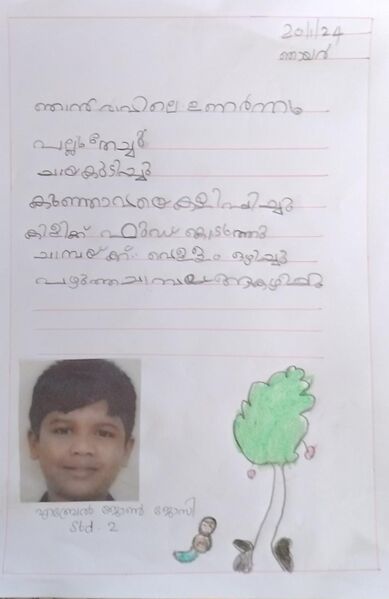 20/1/24
ഞായർ
ഞാൻ രാവിലെ ഉണർന്നു
പല്ലുതേച്ചു
ചായകുടിച്ചു
കുഞ്ഞാവയെകളിപ്പിച്ചു
കിളിക്ക് ഫുഡ് കൊടുത്തു
ചാമ്പയ്ക്ക് വെള്ളം ഒഴിച്ചു
പഴുത്തചാമ്പയ്ങ്ങകഴിച്ചു
ഏബ്രേൽ ജോൺ ജോസി
Std. 2